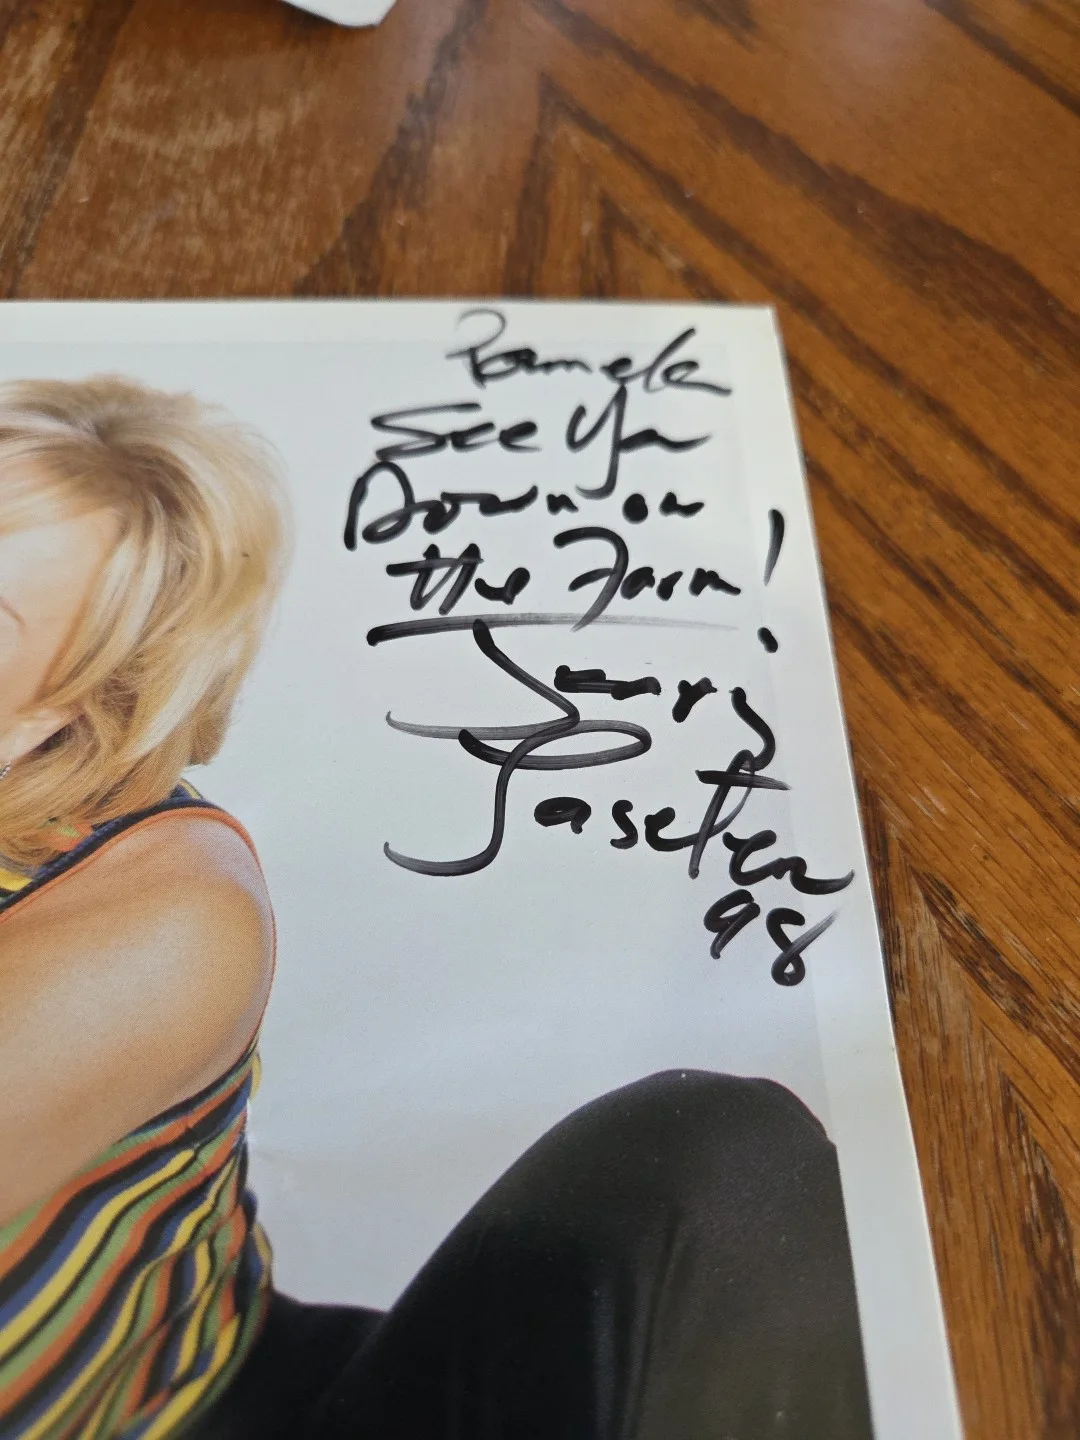 Pamela
See Ya
Down on
the Farm!
Jerry
Taseter
98